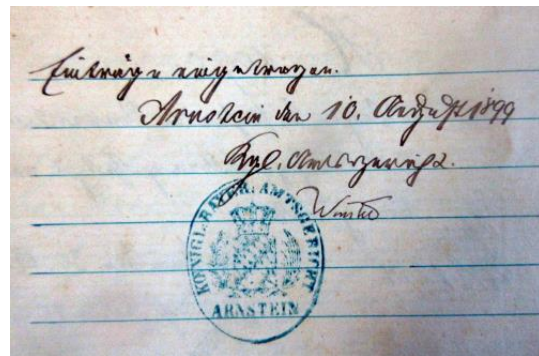 Einträge eingetragen.
Arnstein den 10. August 1899
Kgl. Amtsgericht.
KÖNIGL. BAYER. AMTSGERICHT
ARNSTEIN